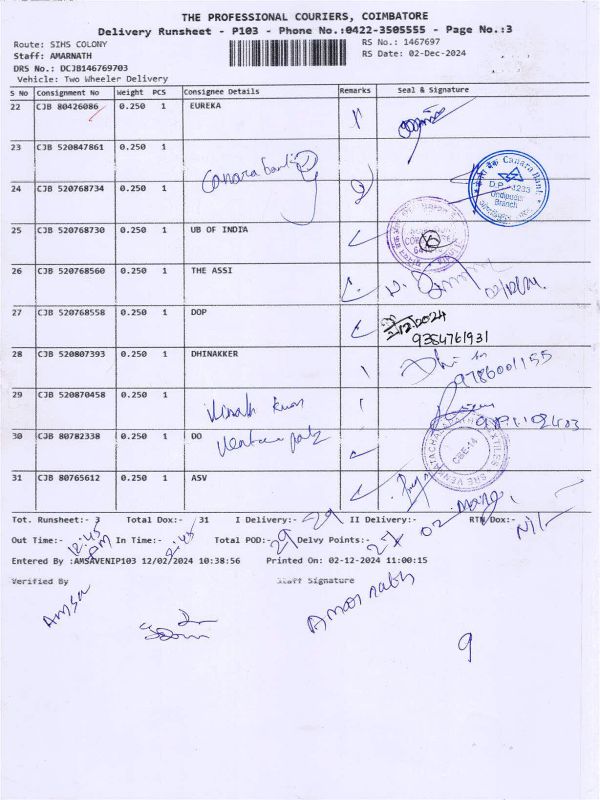 THE PROFESSIONAL COURIERS, COIMBATORE
Delivery Runsheet - P103 - Phone No.:0422-3505555 - Page No.:3
Route: SIHS COLONY RS No.: 1467697
Staff: AMARNATH RS Date: 02-Dec-2024
DRS No.: DCJB146769703
Vehicle: Two Wheeler Delivery
S No Consignment No Weight PCS Consignee Details Remarks Seal & Signature
22 CJB 80426086 0.250 1 EUREKA
23 CJB 520847861 0.250 1
Canara bank
24 CJB 520768734 0.250 1
Canara Bank
Branch
25 CJB 520768730 0.250 1 UB OF INDIA
26 CJB 520768560 0.250 1 THE ASSI
27 CJB 520768558 0.250 1 DOP
9384761931
28 CJB 520807393 0.250 1 DHINAKKER
9786001155
29 CJB 520870458 0.250 1
30 CJB 80782338 0.250 1 DO
CBE-14
31 CJB 80765612 0.250 1 ASV
Tot. Runsheet:- 3 Total Dox:- 31 I Delivery:- 29 II Delivery:- 02 RTN Dox:- Nil
Out Time:- 12:45 PM In Time:- Total POD:- 29 Delvy Points:- 27
Entered By :AMSAVENIP103 12/02/2024 10:38:56 Printed On: 02-12-2024 11:00:15
Verified By Staff Signature
Amsa
Amarnath
9